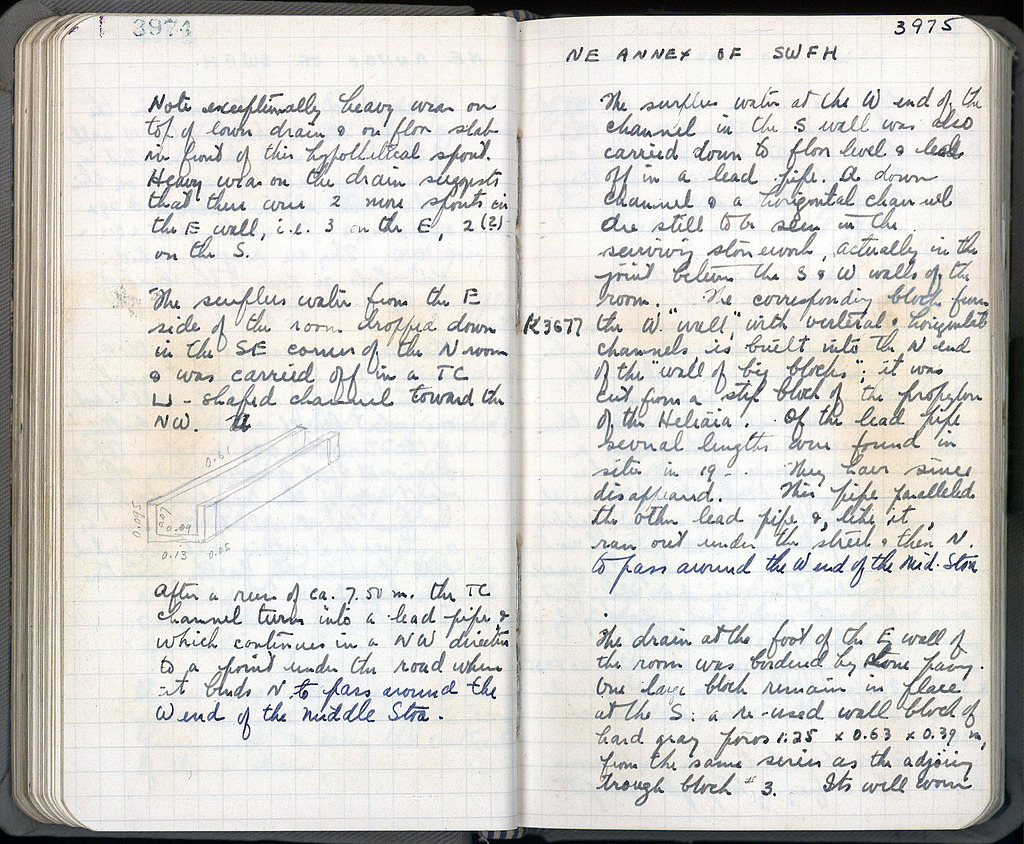 3974
Note exceptionally heavy wear on
top of lower drain & on floor slab
in front of this hypothetical spout.
Heavy wear on the drain suggests
that there were 2 more spouts in
the E wall, i.e. 3 on the E, 2 (?)
on the S.
The surplus water from the E
side of the room dropped down
in the SE corner of the N room
& was carried off in a TC
⊔-shaped channel toward the
NW.
0.61
0.095
0.07
0.09
0.13
0.05
After a run of ca. 7.50 m. the TC
channel turns into a lead pipe &
which continues in a NW direction
to a point under the road where
it bends N. to pass around the
W end of the Middle Stoa.
3975
NE ANNEX OF SWFH
The surplus water at the W end of the
channel in the S wall was also
carried down to floor level & leads
off in a lead pipe. A down
channel & a horizontal channel
are still to be seen in the
surviving stonework, actually in the
joint between the S & W walls of the
room. The corresponding block from
K3677
the W "wall," with vertical & horizontal
channels, is built into the N end
of the "wall of big blocks"; it was
cut from a step block of the propylon
of the Heliaia. Of the lead pipe
several lengths were found in
situ in 19-. They have since
disappeared. This pipe paralleled
the other lead pipe &, like it,
ran out under the street & then N.
to pass around the W end of the Mid. Stoa
The drain at the foot of the E wall of
the room was bordered by stone paving.
One large block remain in place
at the S: a re-used wall block of
hard gray poros 1.25 x 0.63 x 0.39 m,
from the same series as the adjoining
trough block # 3. Its well worn